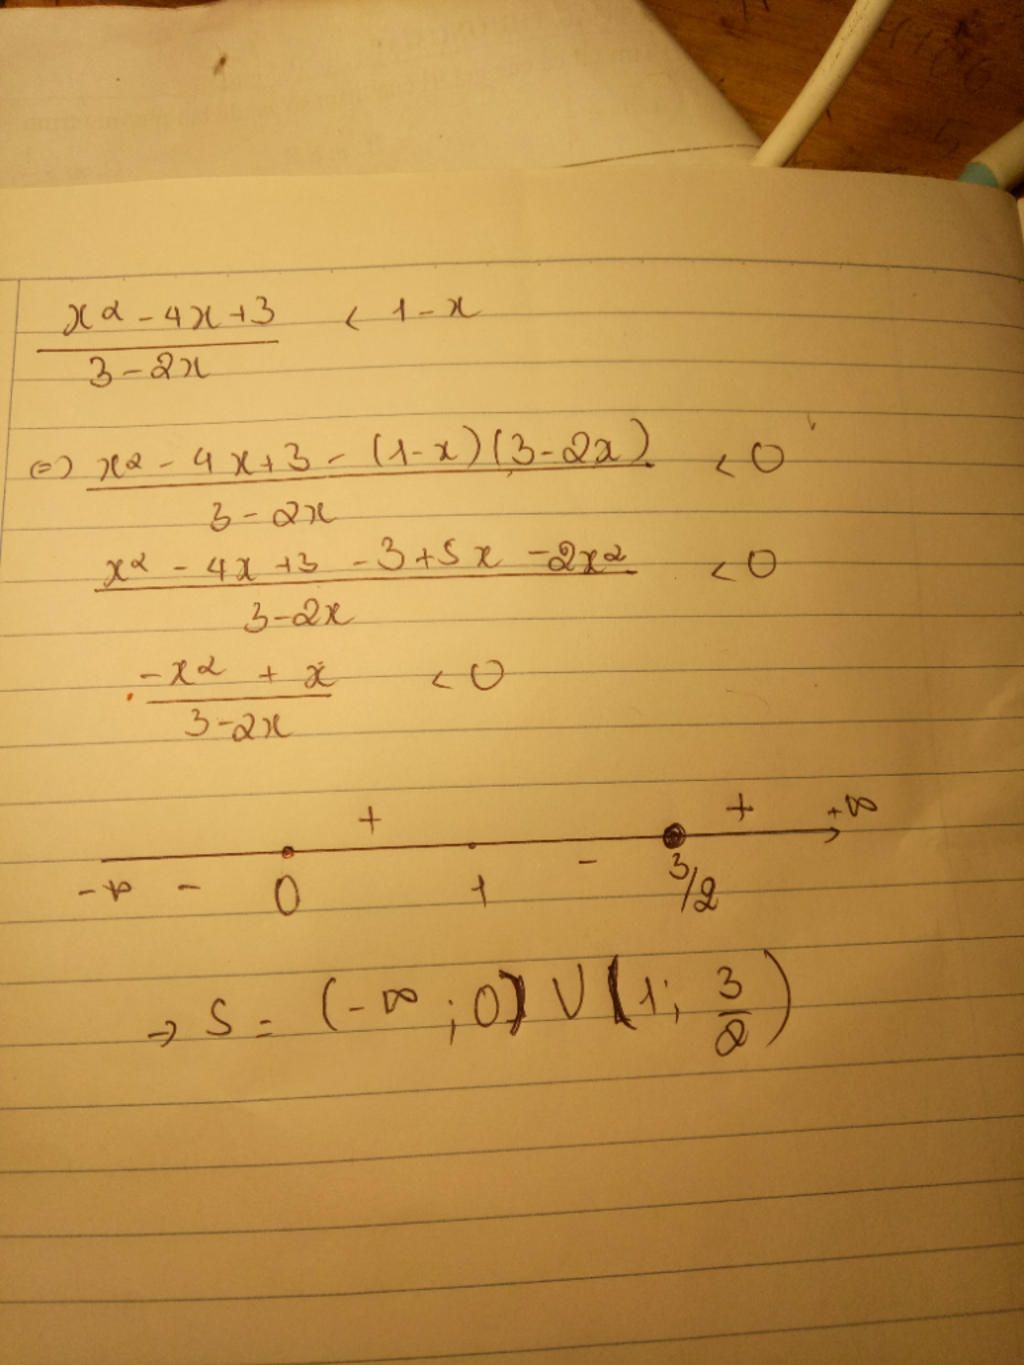 x² - 4x + 3 < 1 - x
3 - 2x
⇔ x² - 4x + 3 - (1 - x)(3 - 2x) < 0
3 - 2x
x² - 4x + 3 - 3 + 5x - 2x² < 0
3 - 2x
-x² + x < 0
3 - 2x
+ + +∞
-∞ - 0 1 - 3/2
→ S = (-∞; 0) ∪ (1; 3/2)